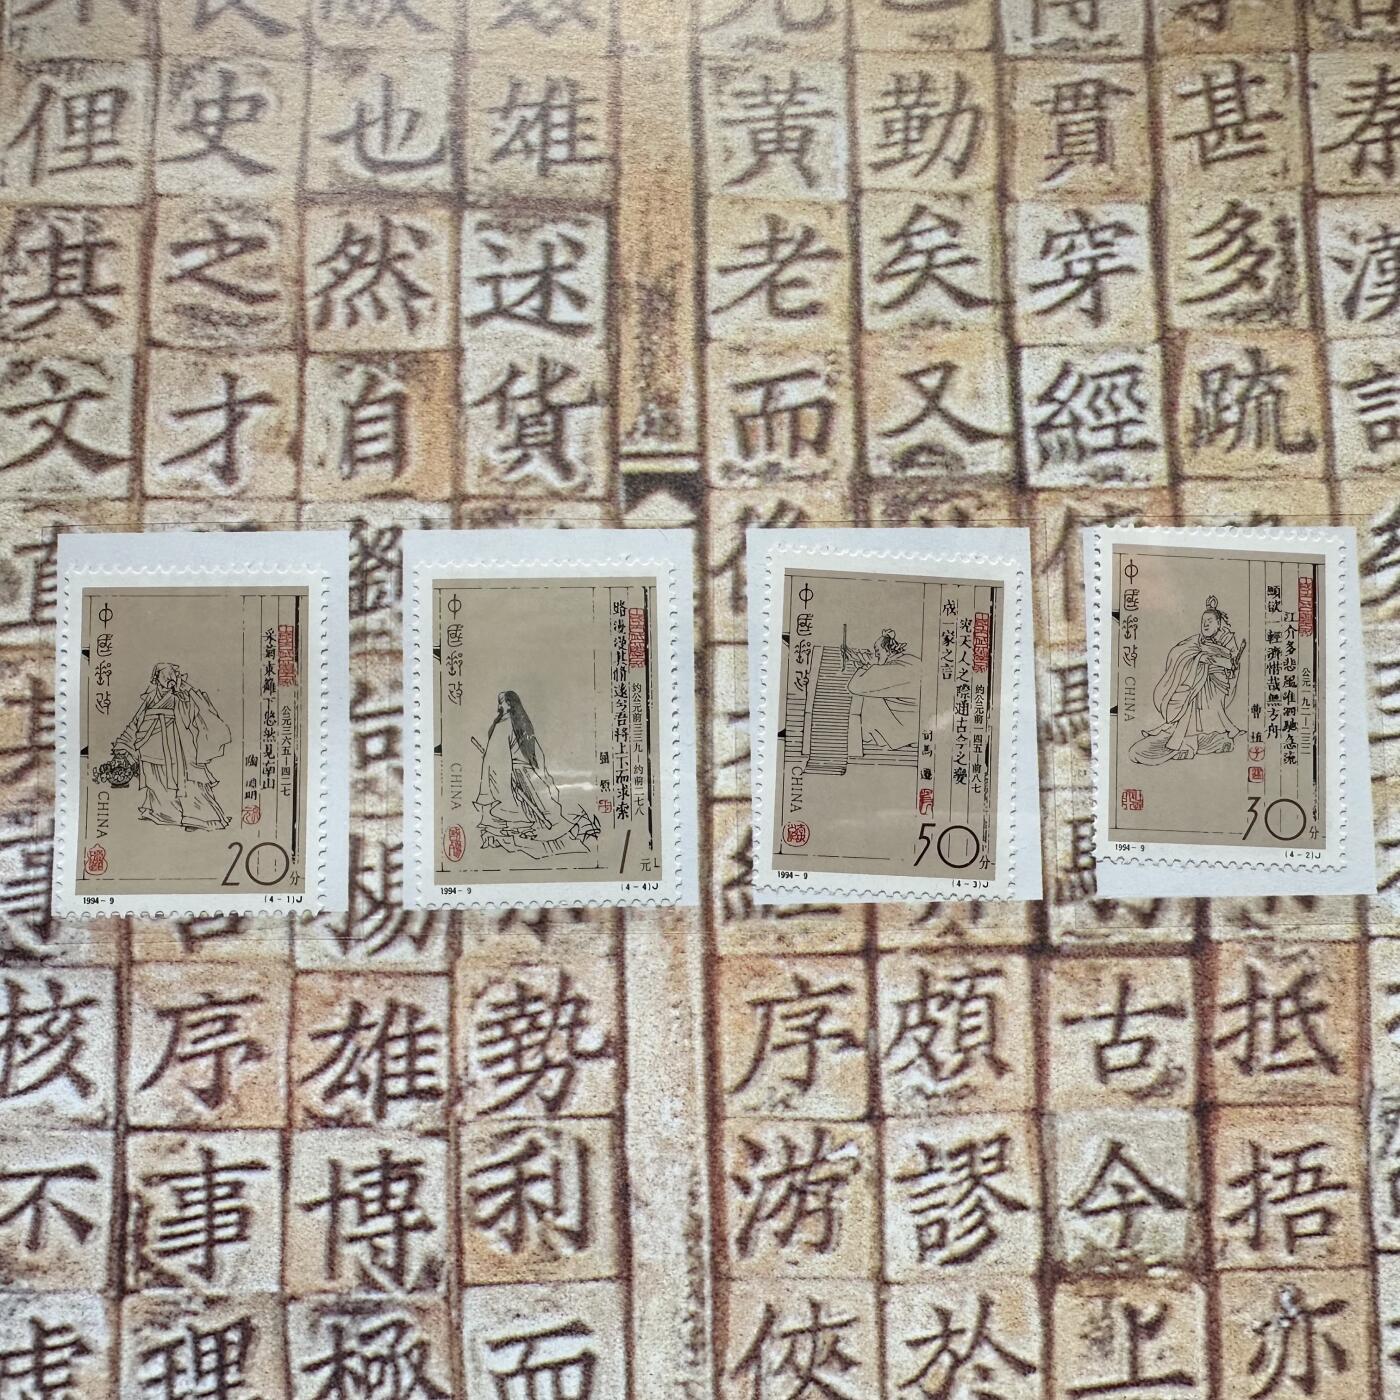 秦漢
甚多疏
貫穿經
勤矣又
黃老而
雄述貨
也然自
史之才
俚其文
中國郵政
CHINA
采菊東籬下悠然見南山
陶淵明
公元三六五—四二七
20分
1994-9
(4-1)J
中國郵政
CHINA
路漫漫其脩遠兮吾將上下而求索
屈原
约公元前三三九—约前二七八
1元
1994-9
(4-4)J
中國郵政
CHINA
究天人之際通古今之變
成一家之言
司馬遷
约公元前一四五—前八七
50分
1994-9
(4-3)J
中國郵政
CHINA
江介多悲風淮泗馳急流
願欲一輕濟惜哉無方舟
曹植
公元一九二—二三二
30分
1994-9
(4-2)J
抵捂亦
古今上
頗謬於
序游俠
勢利而
雄博極
序事理
核不虛